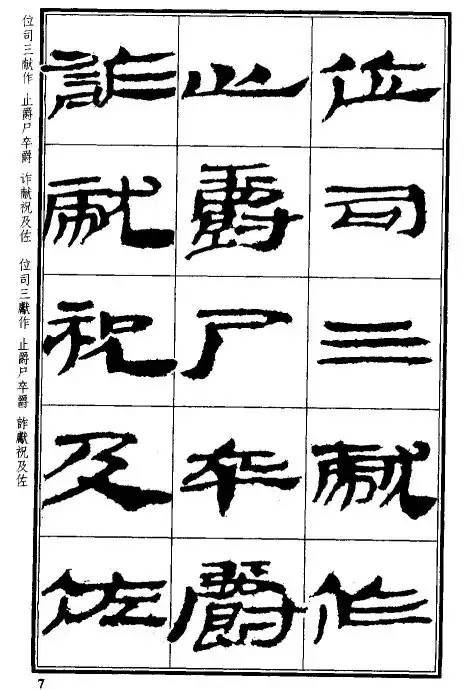 位司三献作
止爵尸卒爵
诈献祝及佐
位司三献作 止爵尸卒爵 诈献祝及佐
位司三獻作 止爵尸卒爵 詐獻祝及佐
7